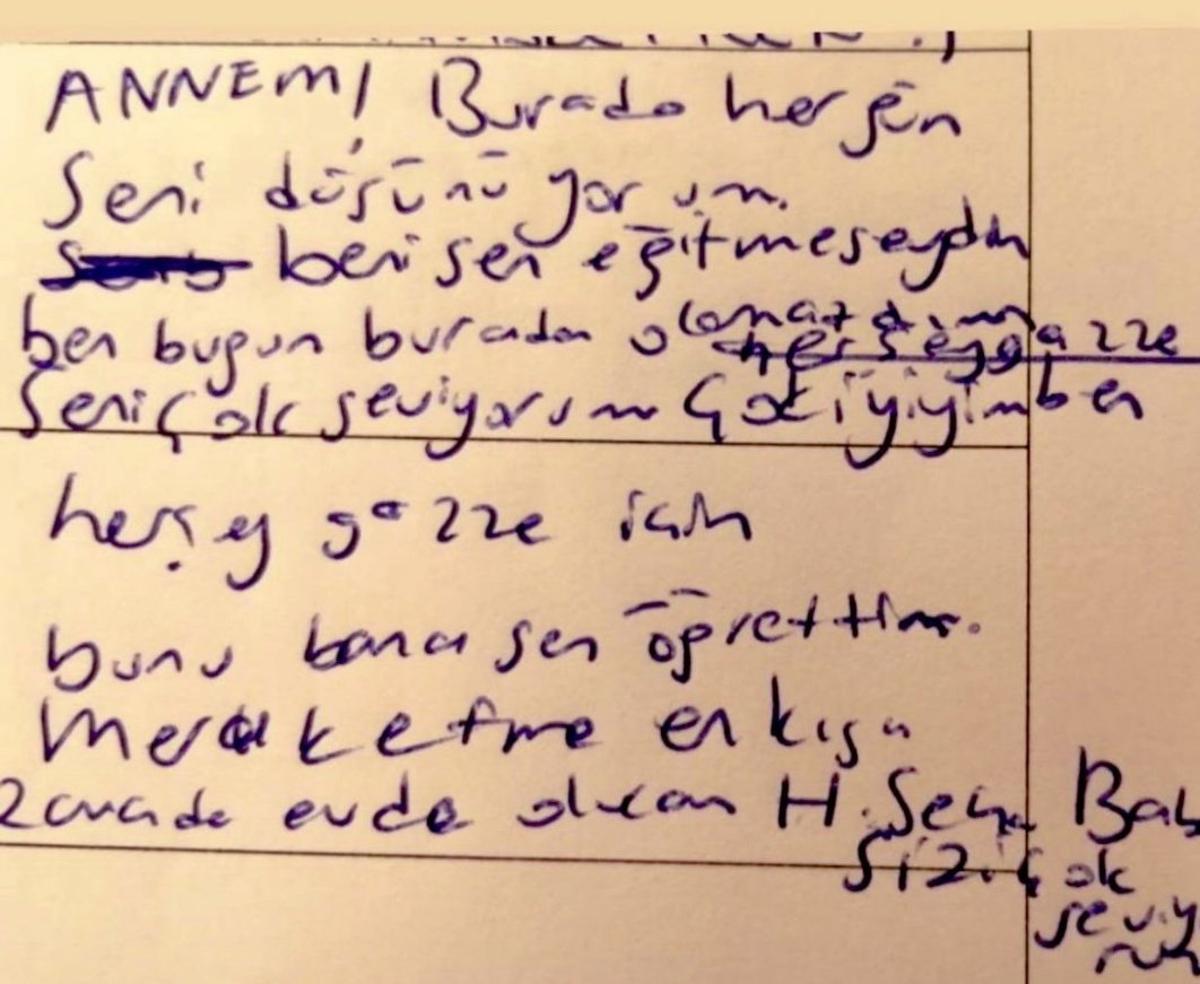 ANNEM! Burada hergün
Seni düşünüyorum.
beni sen eğitmeseydin
ben bugün burada olamazdım
herşey gazze
Seni çok seviyorum Çok iyiyim ben
herşey gazze için
bunu bana sen öğrettin.
Merak etme en kısa
Zamanda evde olucam H. Baba
Sizi çok
seviyorum